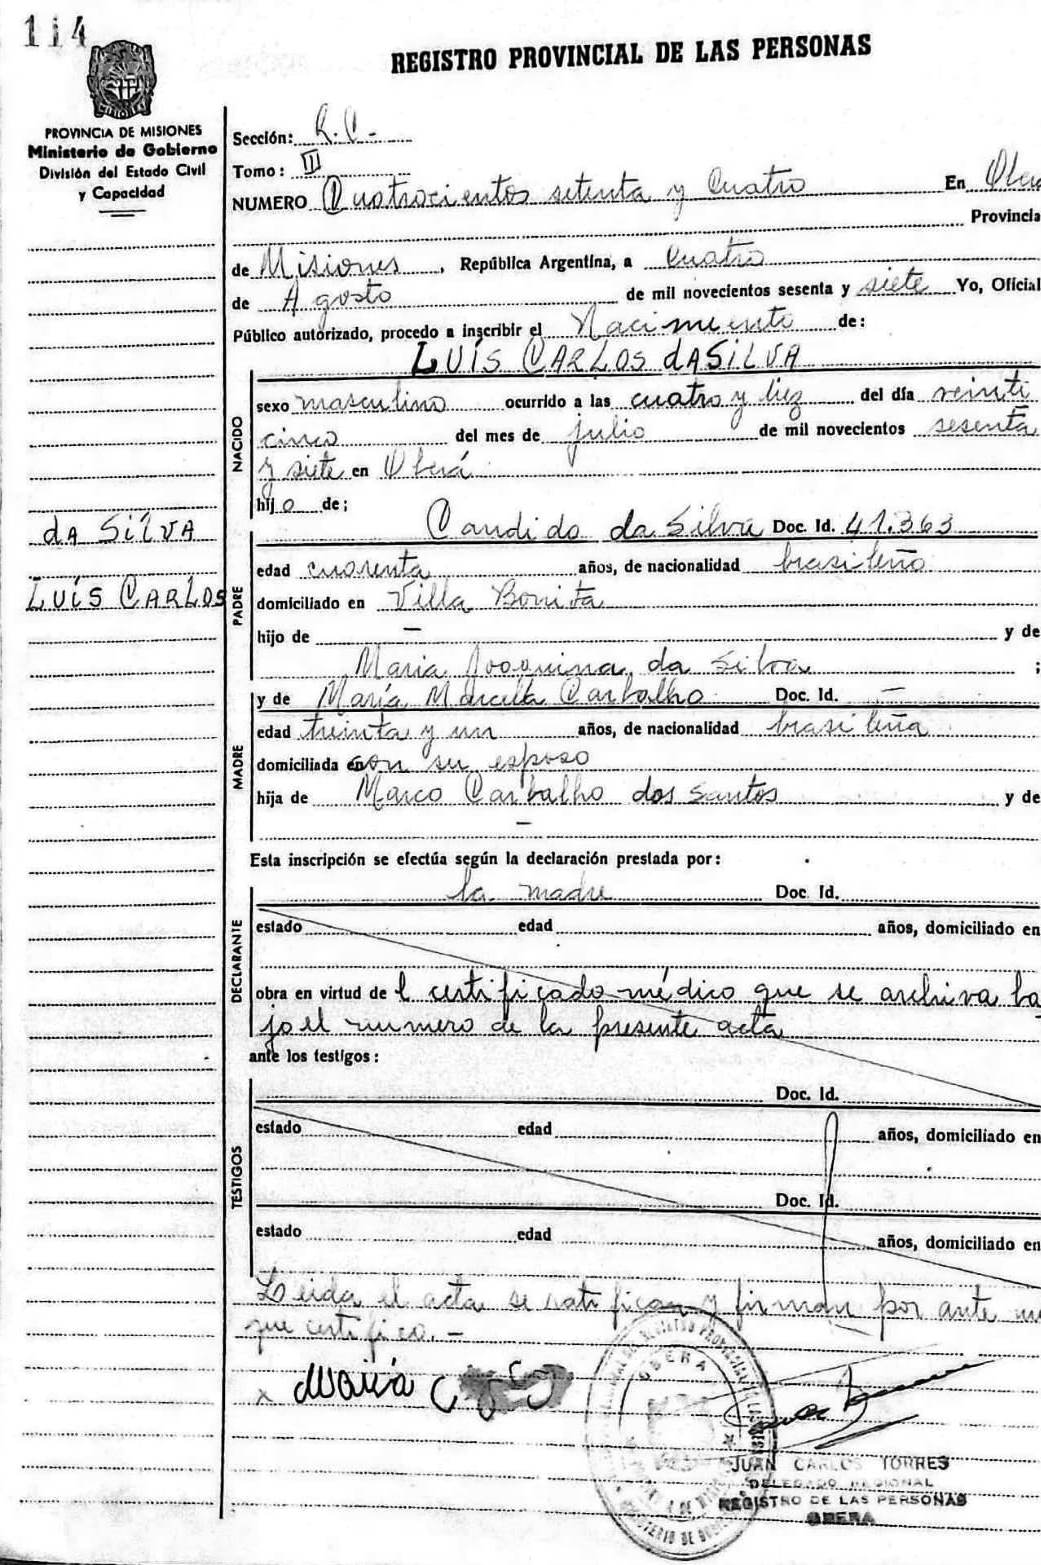 114
REGISTRO PROVINCIAL DE LAS PERSONAS
PROVINCIA DE MISIONES
Ministerio de Gobierno
División del Estado Civil
y Capacidad
Sección: R.C.-
Tomo: II
NUMERO Cuatrocientos setenta y Cuatro En Oberá
Provincia
de Misiones, República Argentina, a Cuatro
de Agosto de mil novecientos sesenta y siete Yo, Oficial
Público autorizado, procedo a inscribir el Nacimiento de:
LUÍS CARLOS dASILVA
NACIDO
sexo masculino ocurrido a las cuatro y diez del día veinti
cinco del mes de julio de mil novecientos sesenta
y siete en Oberá
hijo de;
dA SÍLVA
LUÍS CARLOS
PADRE
Candido da Silva Doc. Id. 41.363
edad cuarenta años, de nacionalidad brasileño
domiciliado en Villa Bonita
hijo de — y de
Maria Joaquina da Silva ;
y de María Marcella Carbalho Doc. Id. —
MADRE
edad treinta y un años, de nacionalidad brasileña
domiciliada con su esposo
hija de Marco Carbalho dos Santos y de
—
Esta inscripción se efectúa según la declaración prestada por:
DECLARANTE
la madre Doc. Id.
estado edad años, domiciliado en
obra en virtud de l certificado médico que se archiva ba
jo el numero de la presente acta
ante los testigos:
TESTIGOS
Doc. Id.
estado edad años, domiciliado en
Doc. Id.
estado edad años, domiciliado en
Leida el acta se ratifican y firman por ante mi
que certifico.—
x María
OBERA
JUAN CARLOS TORRES
DELEGADO REGIONAL
REGISTRO DE LAS PERSONAS
OBERA